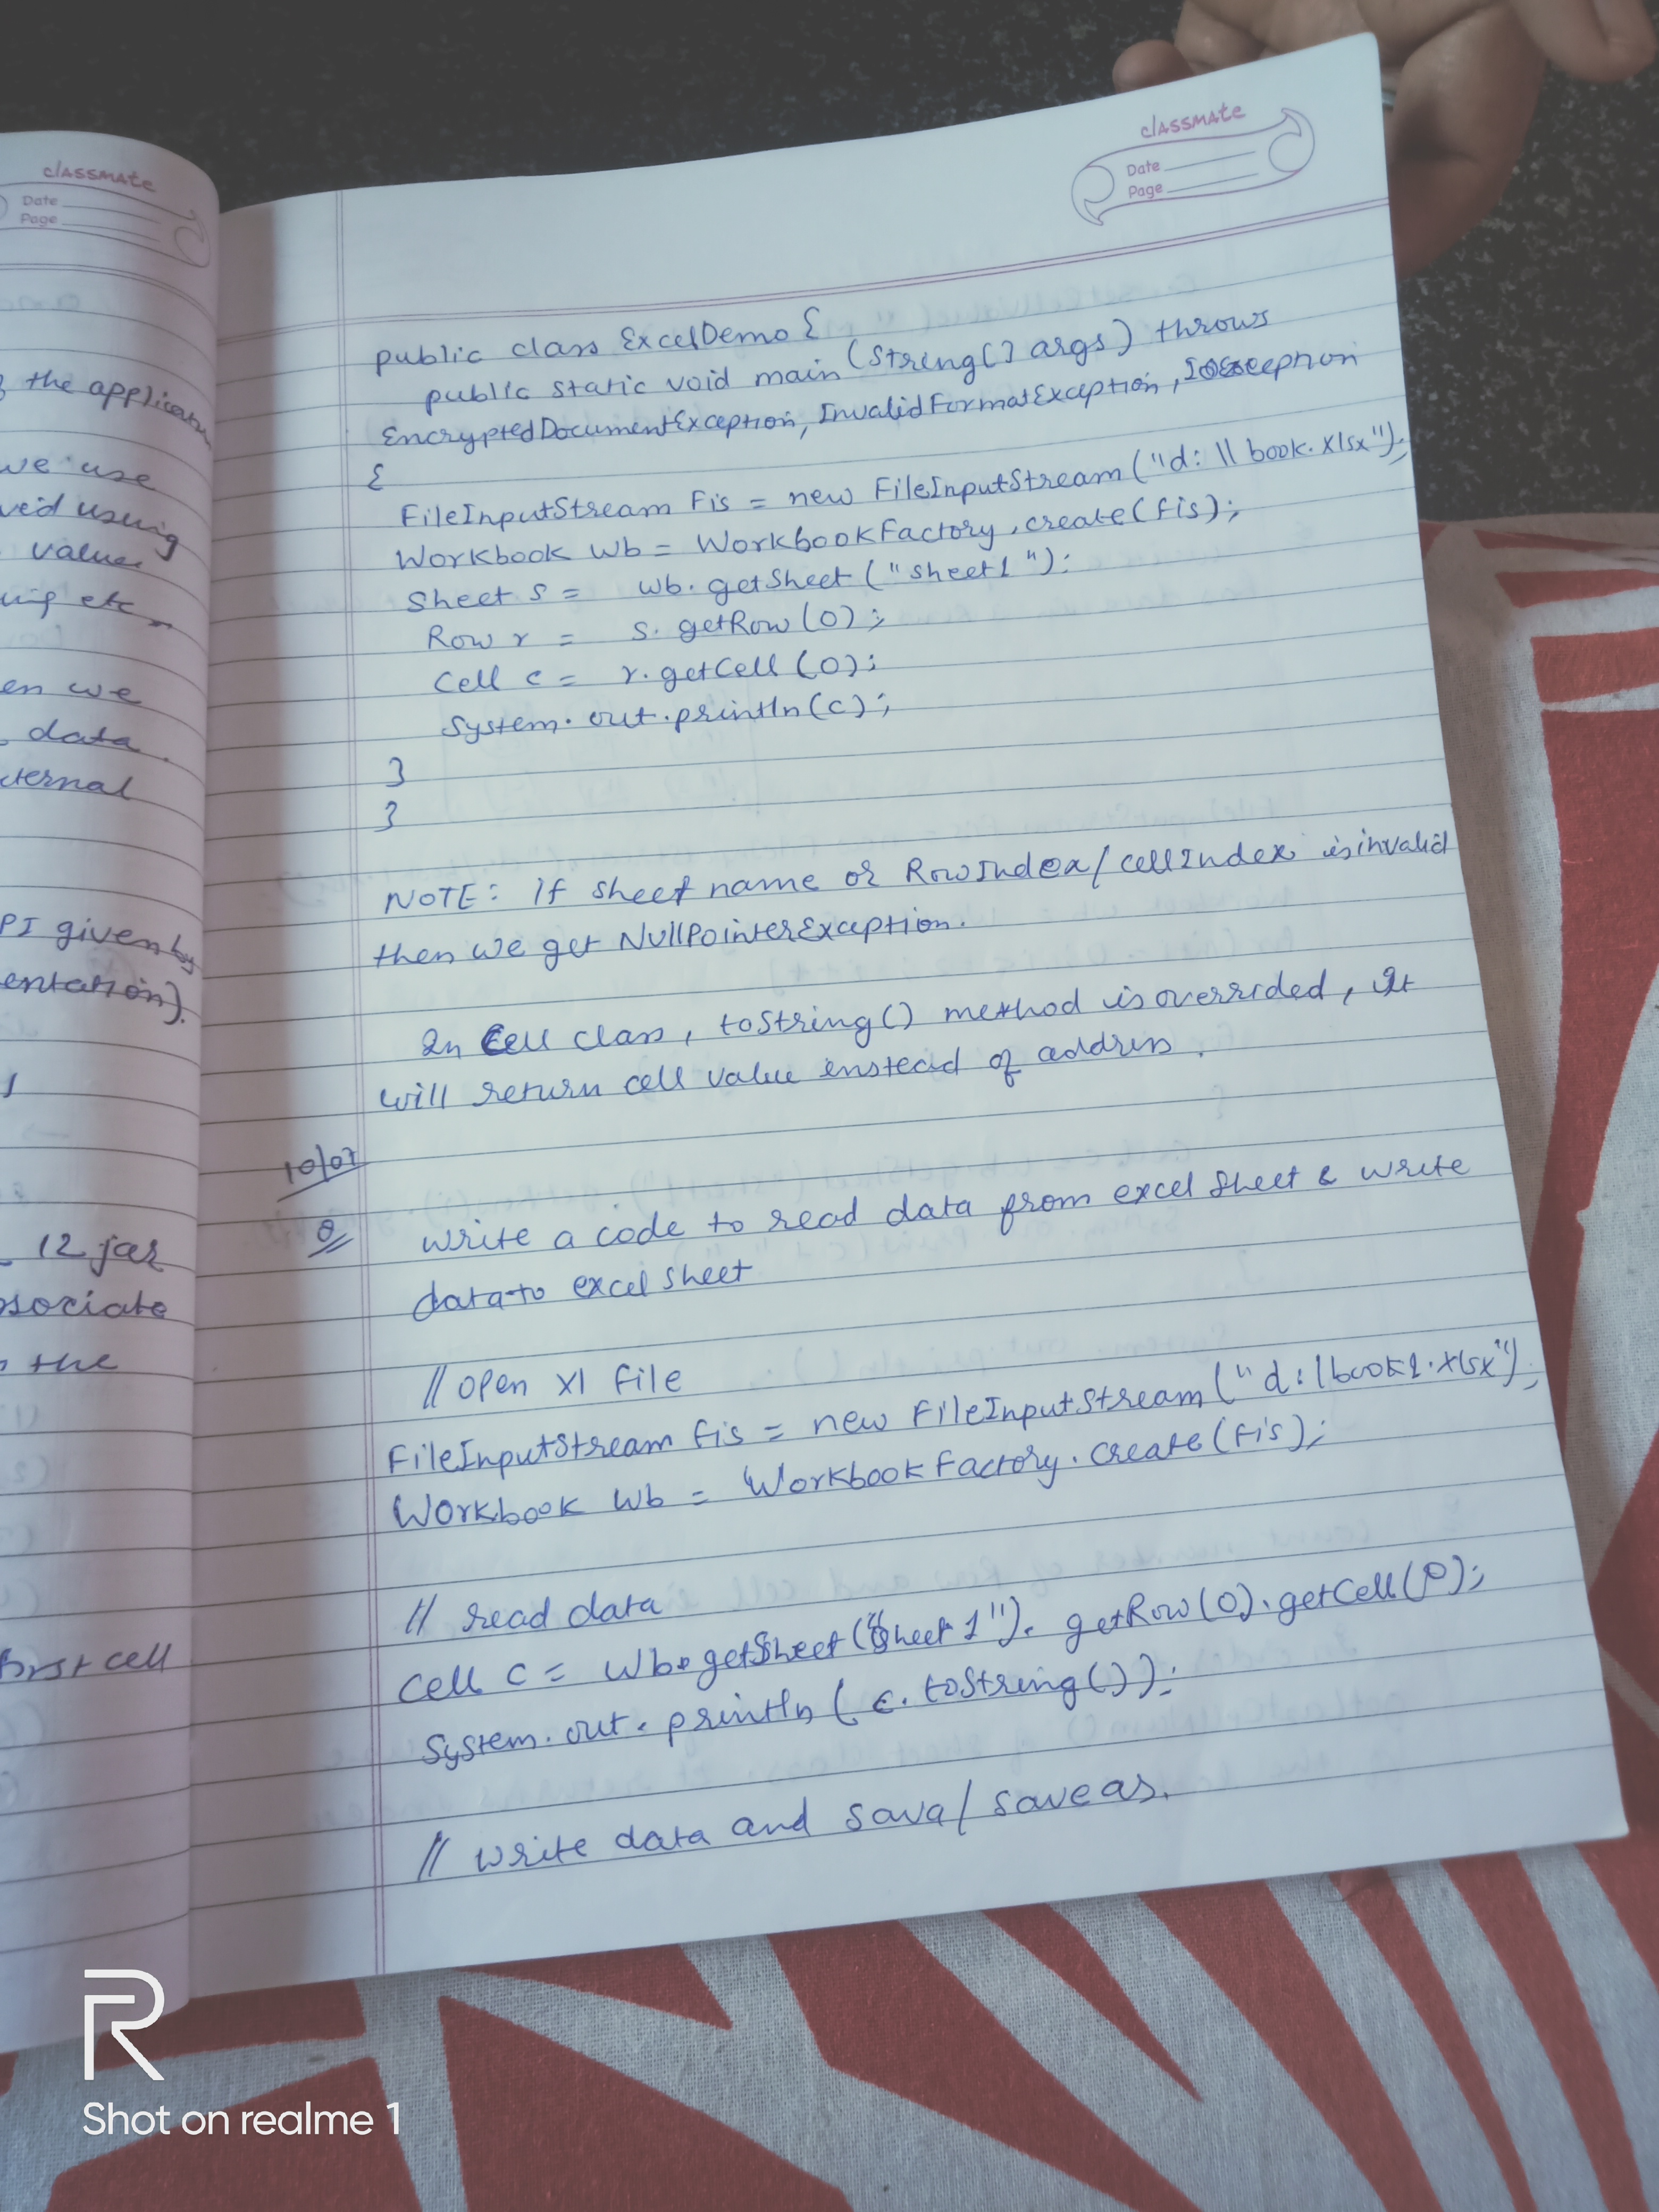 classmate
Date
Page
the application
we use
using
value
etc
en we
data
ternal
PI given by
entation).
12 jar
sociate
the
first cell
classmate
Date
Page
public class ExcelDemo {
public static void main (String[] args) throws
EncryptedDocumentException, InvalidFormatException, IOException
{
FileInputStream Fis = new FileInputStream ("d: \\ book.xlsx");
Workbook wb = WorkbookFactory.create(fis);
Sheet s = wb.getSheet ("sheet1");
Row r = s.getRow (0);
Cell c = r.getCell (0);
System.out.println(c);
}
}
NOTE: if sheet name or RowIndex/cellIndex is invalid
then we get NullPointerException.
In Cell class, toString() method is overrided, It
will return cell value instead of address.
10/07
Q
write a code to read data from excel sheet & write
data to excel sheet
// open xl file
FileInputStream fis = new FileInputStream ("d:\book1.xlsx");
Workbook wb = WorkbookFactory.create(fis);
// read data
Cell c = wb.getSheet("Sheet 1").getRow(0).getCell(0);
System.out.println (c.toString());
// write data and sava/saveas.
R
Shot on realme 1